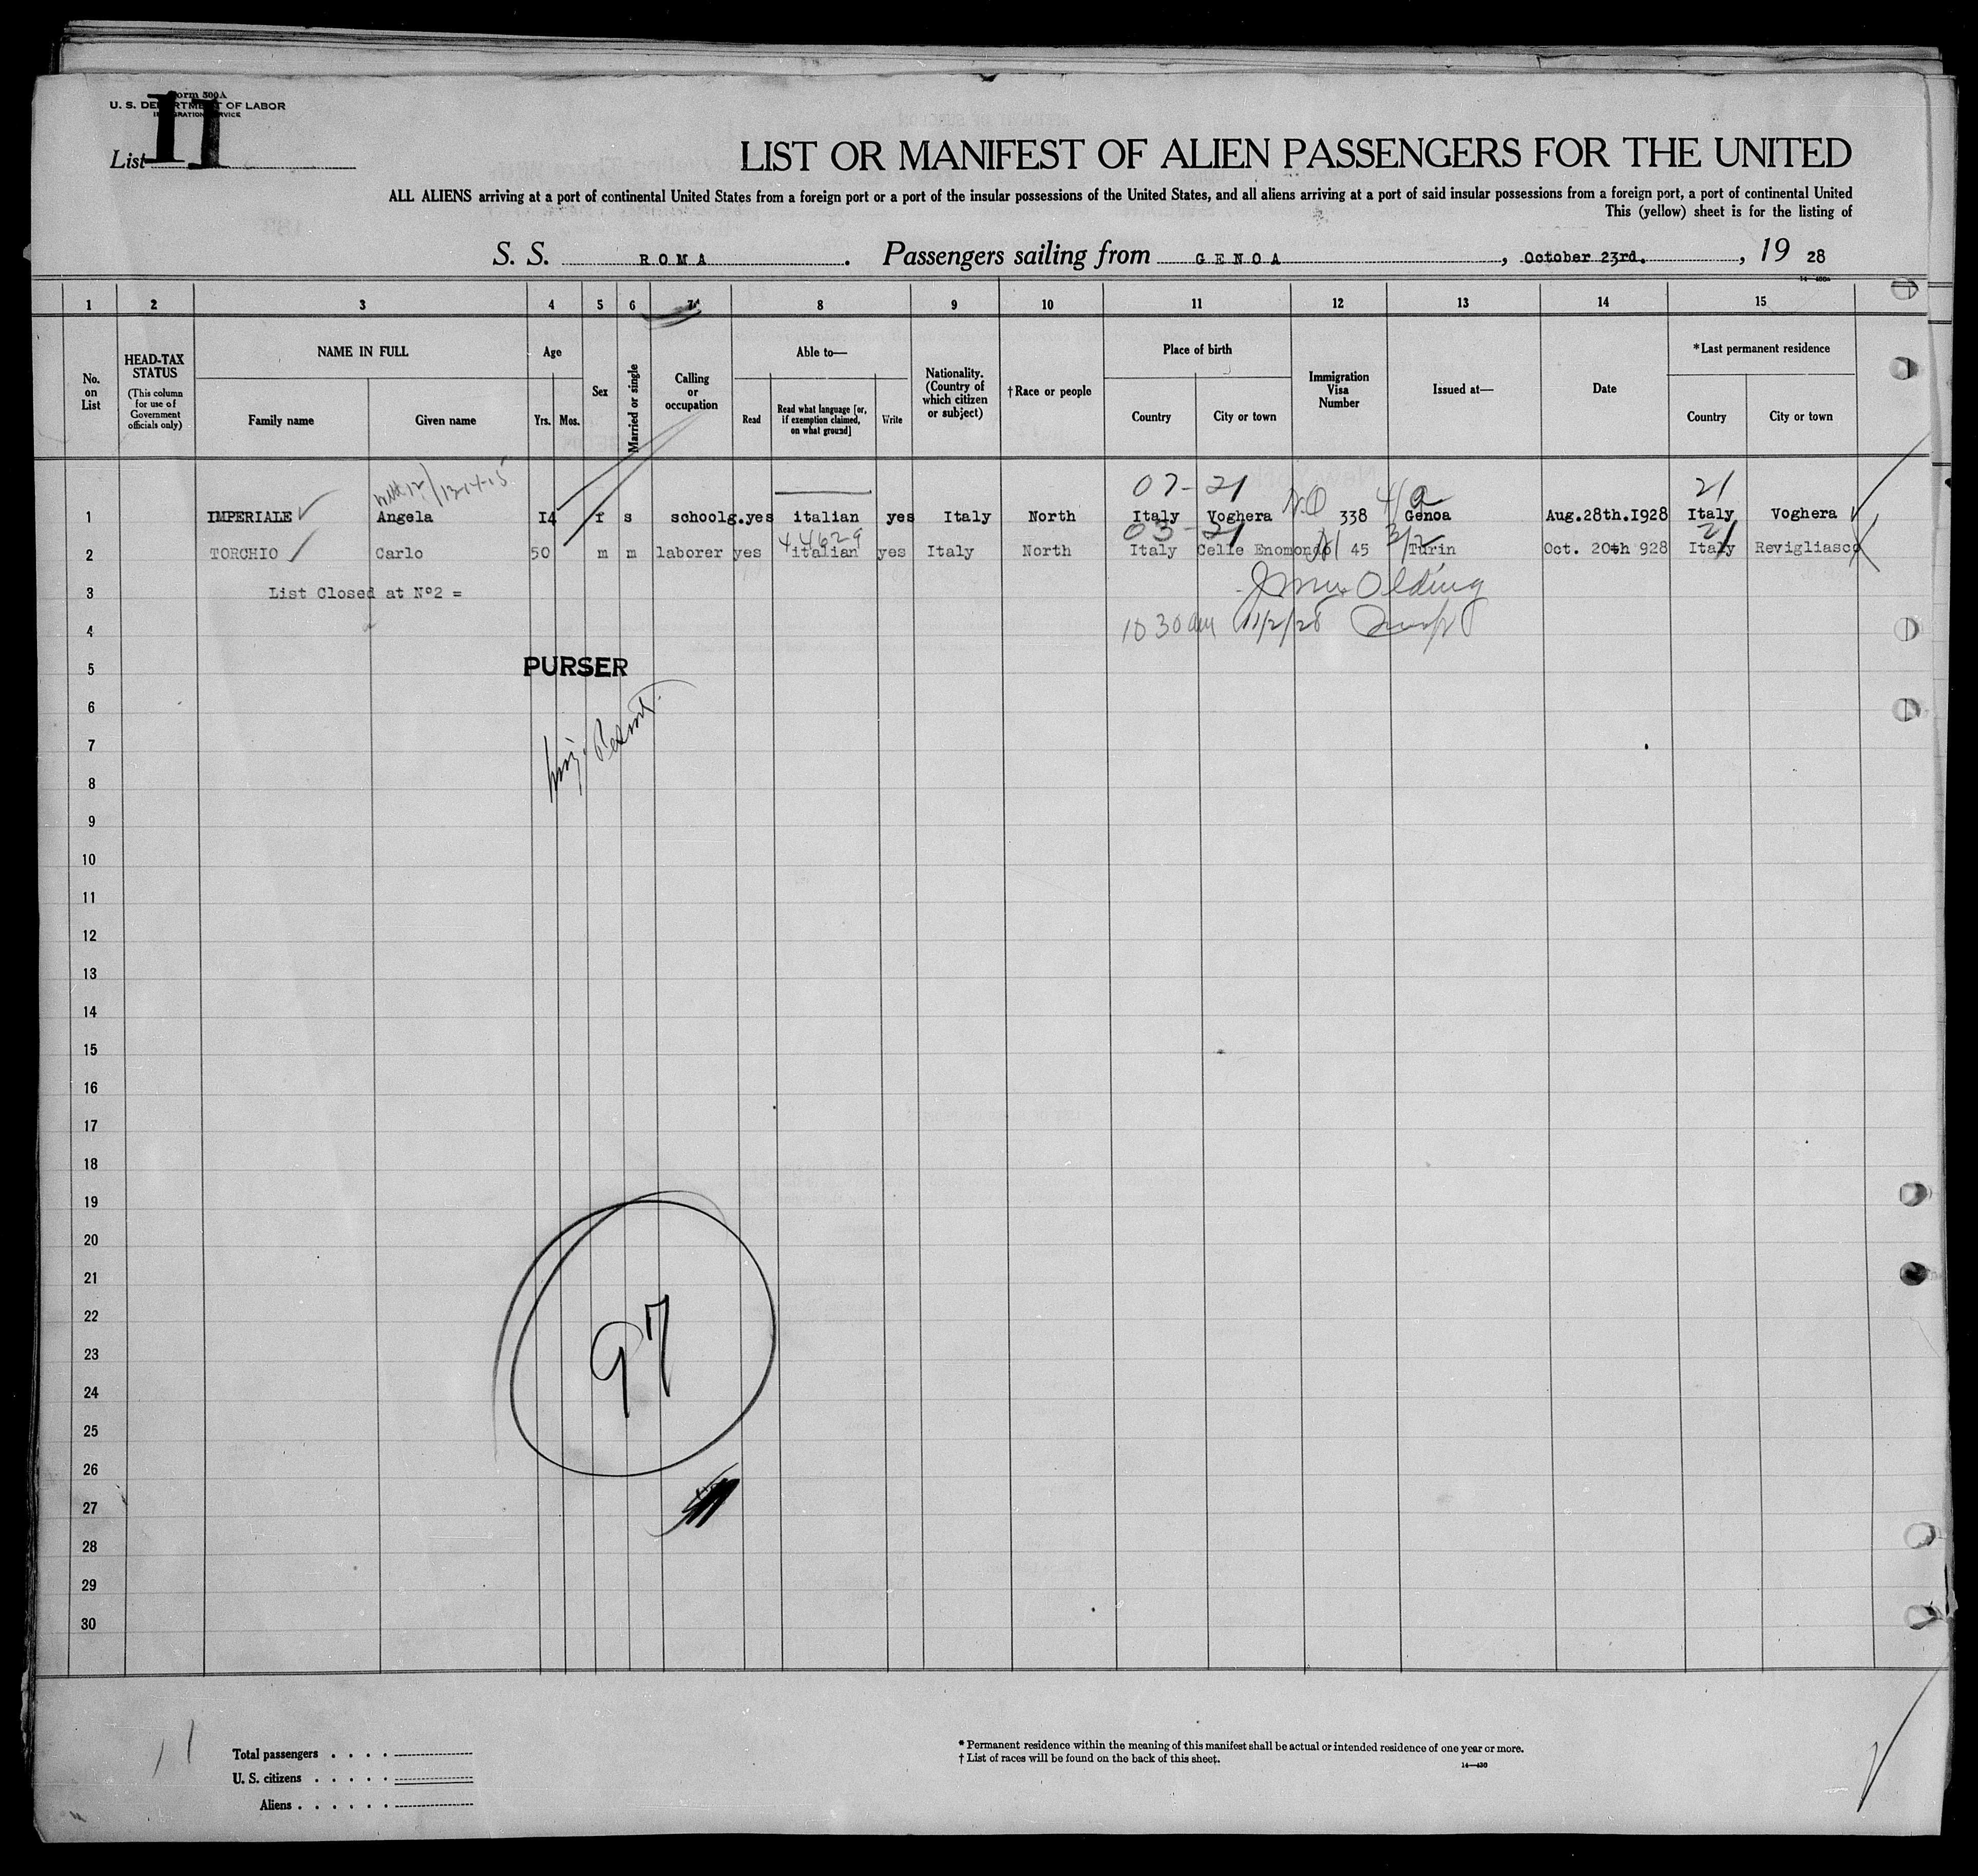 Form 500A
U. S. DEPARTMENT OF LABOR
IMMIGRATION SERVICE
List 11
LIST OR MANIFEST OF ALIEN PASSENGERS FOR THE UNITED
ALL ALIENS arriving at a port of continental United States from a foreign port or a port of the insular possessions of the United States, and all aliens arriving at a port of said insular possessions from a foreign port, a port of continental United
This (yellow) sheet is for the listing of
S. S. ROMA. Passengers sailing from GENOA, October 23rd., 19 28
1 2 3 4 5 6 7 8 9 10 11 12 13 14 15
No. on List
HEAD-TAX STATUS (This column for use of Government officials only)
NAME IN FULL
Family name Given name
Age
Yrs. Mos.
Sex
Married or single
Calling or occupation
Able to—
Read
Read what language [or, if exemption claimed, on what ground]
Write
Nationality. (Country of which citizen or subject)
†Race or people
Place of birth
Country City or town
Immigration Visa Number
Issued at—
Date
*Last permanent residence
Country City or town
07-21 21
1 IMPERIALE Angela 14 f s schoolg. yes italian yes Italy North Italy Voghera 338 Genoa Aug.28th.1928 Italy Voghera
44629 03-21 21
2 TORCHIO Carlo 50 m m laborer yes italian yes Italy North Italy Celle Enomondo 45 Turin Oct. 20th 928 Italy Revigliasco
3 List Closed at Nº2 =
4 10 30 am 11/2/28
5 PURSER
6
7
8
9
10
11
12
13
14
15
16
17
18
19
20
21
22
23
97
24
25
26
27
28
29
30
Total passengers . . . .
U. S. citizens . . . . .
Aliens . . . . . .
* Permanent residence within the meaning of this manifest shall be actual or intended residence of one year or more.
† List of races will be found on the back of this sheet.
14—430